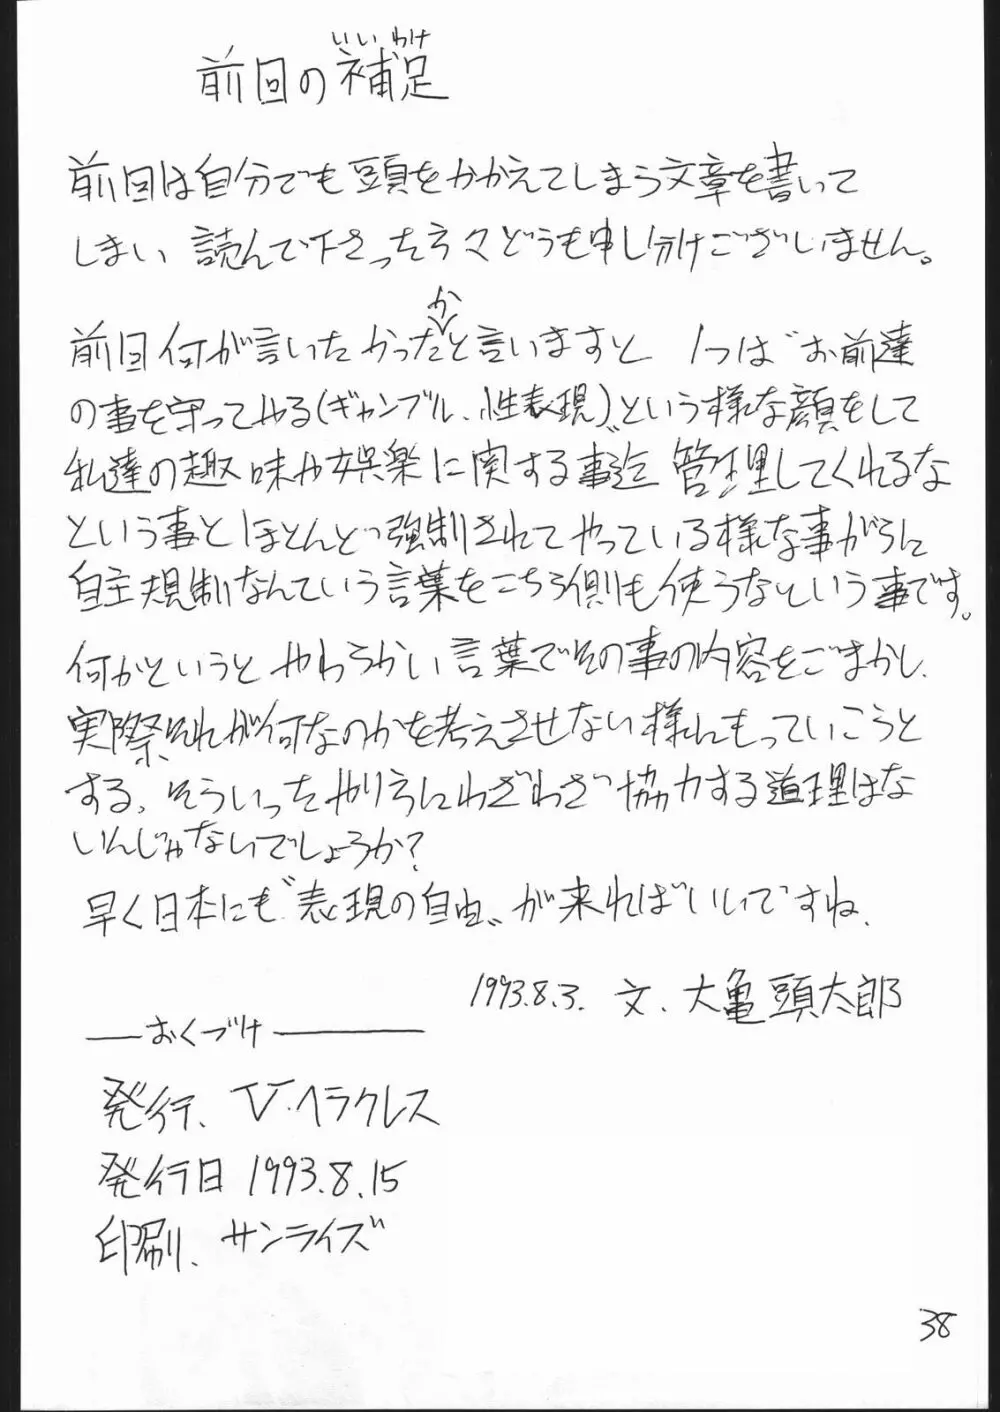 いいわけ
前回の補足
前回は自分でも頭をかかえてしまう文章を書いて
しまい 読んで下さった方々どうも申し分けございません。
か
前回何が言いたかったと言いますと 1つは〝お前達
の事を守ってやる(ギャンブル、性表現)〟という様な顔をして
私達の趣味や娯楽に関する事迄 管理してくれるな
という事と ほとんど強制されてやっている様な事がらに
自主規制なんていう言葉をこちら側も使うなという事です。
何かというと やわらかい言葉でその事の内容をごまかし、
実際、それが何なのかを考えさせない様にもっていこうと
する、そういったやり方にわざわざ協力する道理はな
いんじゃないでしょうか?
早く日本にも〝表現の自由〟が来ればいいですね。
1993.8.3. 文、大亀頭太郎
——おくづけ————
発行、V・ヘラクレス
発行日 1993.8.15
印刷、サンライズ
38